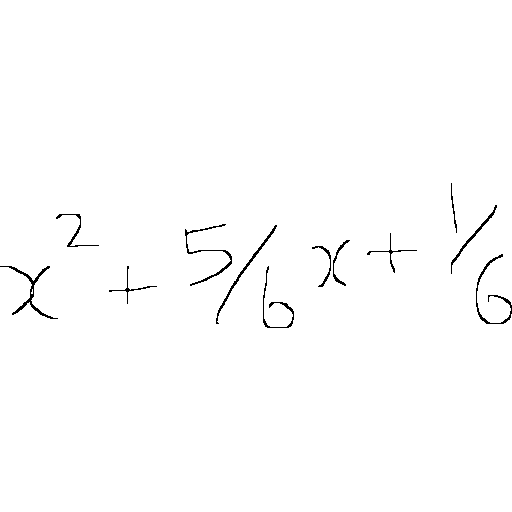 x² + 5/6 x + 1/6